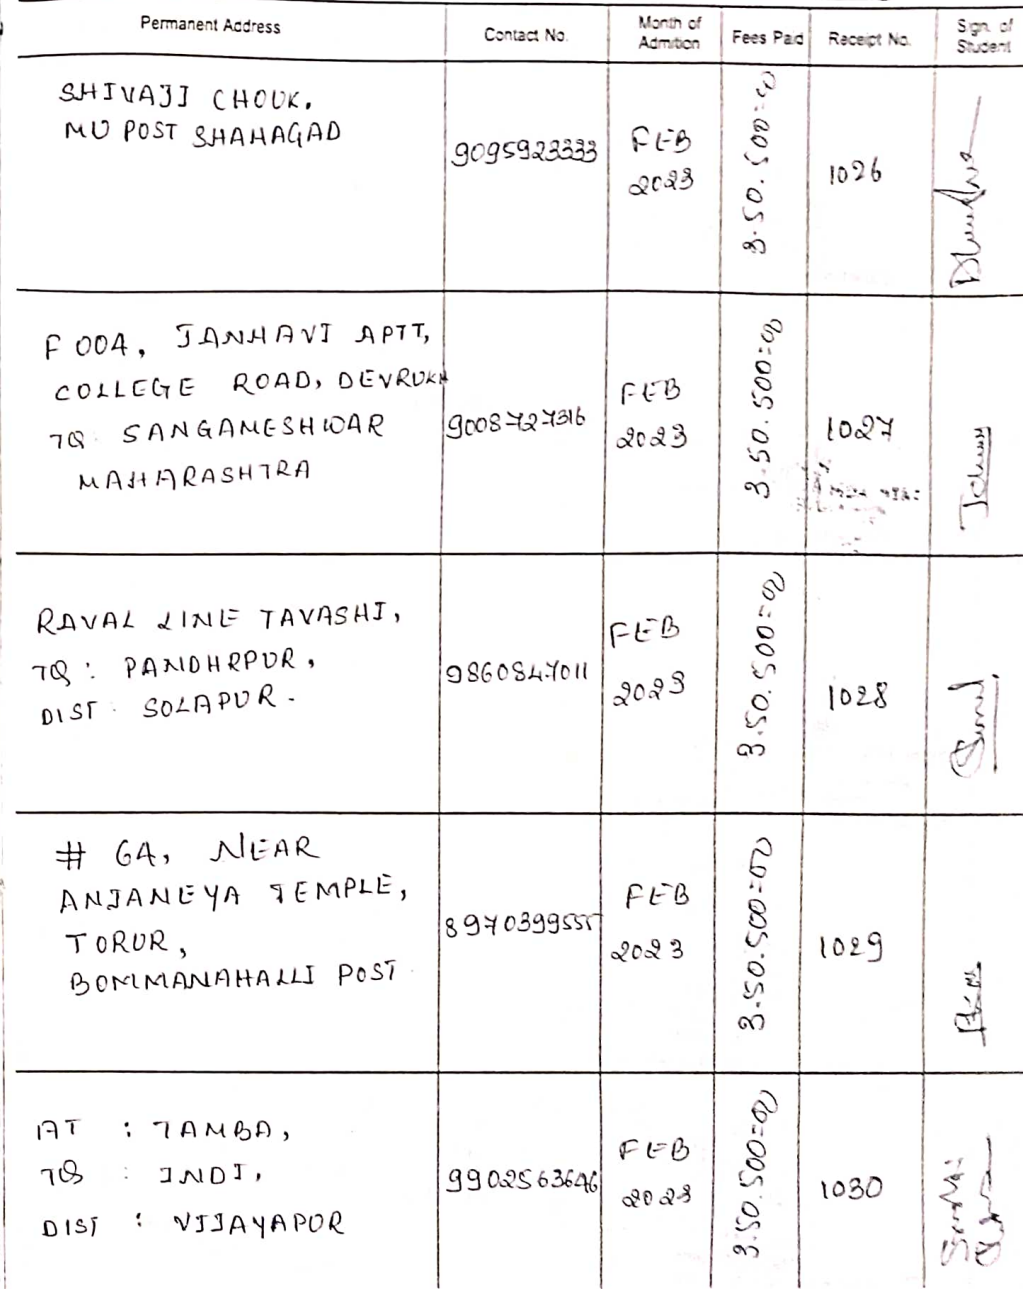 Permanent Address Contact No. Month of Admition Fees Paid Receipt No. Sign. of Student
SHIVAJI CHOUK,
MU POST SHAHAGAD
9095923333
FEB
2023
3.50.500=00
1026
F 004, JANHAVI APTT,
COLLEGE ROAD, DEVRUKH
TQ SANGAMESHWAR
MAHARASHTRA
9008727316
FEB
2023
3.50.500=00
1027
RAVAL LINE TAVASHI,
TQ : PANDHRPUR,
DIST : SOLAPUR.
9860847011
FEB
2023
3.50.500=00
1028
Sunil
# 64, NEAR
ANJANEYA TEMPLE,
TORUR,
BOMMANAHALLI POST
8970399555
FEB
2023
3.50.500=00
1029
AT : TAMBA,
TQ : INDI,
DIST : VIJAYAPUR
9902563646
FEB
2023
3.50.500=00
1030